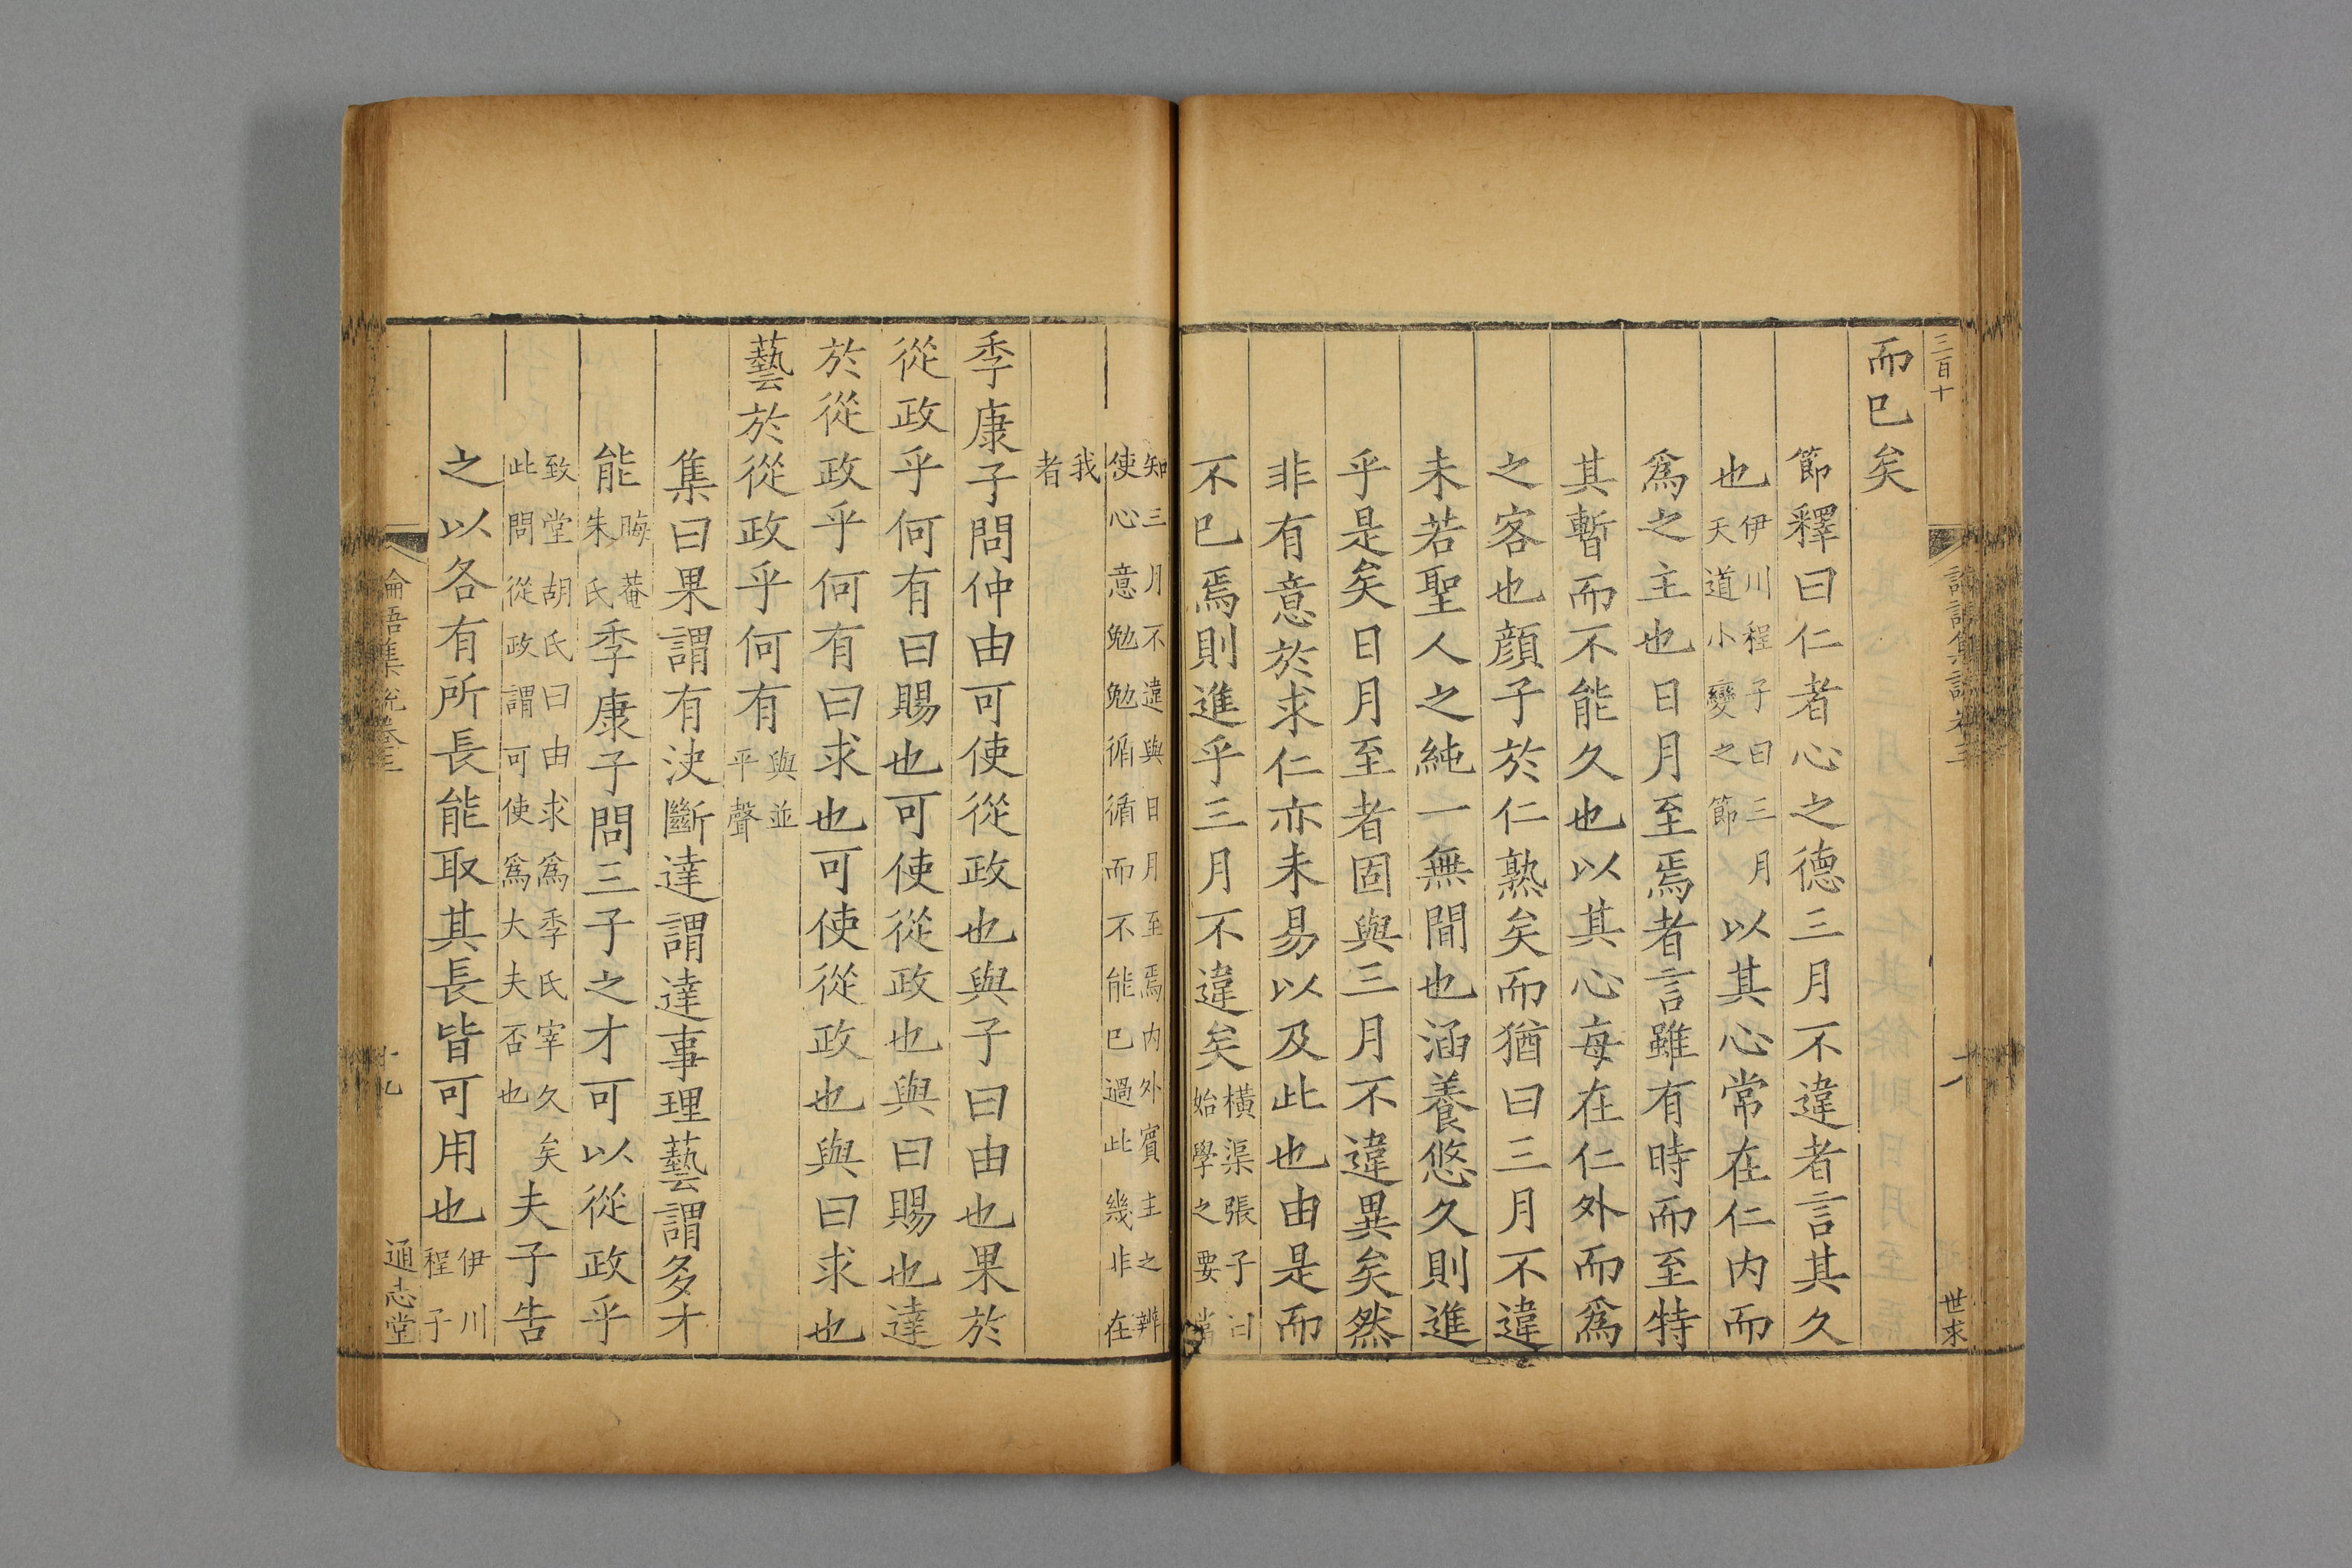 三百十
世求
而已矣
節釋曰仁者心之德三月不違者言其久
也伊川程子曰三月天道小變之節以其心常在仁内而
爲之主也日月至焉者言雖有時而至特
其暫而不能久也以其心每在仁外而爲
之客也顔子於仁熟矣而猶曰三月不違
未若聖人之純一無間也涵養悠久則進
乎是矣日月至者固與三月不違異矣然
非有意於求仁亦未易以及此也由是而
不已焉則進乎三月不違矣橫渠張子曰始學之要當
知三月不違與日月至焉内外賓主之辨
使心意勉勉循循而不能已過此幾非在
我者
季康子問仲由可使從政也與子曰由也果於
從政乎何有曰賜也可使從政也與曰賜也達
於從政乎何有曰求也可使從政也與曰求也
藝於從政乎何有與並平聲
集曰果謂有決斷達謂達事理藝謂多才
能晦菴朱氏季康子問三子之才可以從政乎
致堂胡氏曰由求爲季氏宰久矣此問從政謂可使爲大夫否也夫子告
之以各有所長能取其長皆可用也伊川程子
論語集說卷三
十九
通志堂